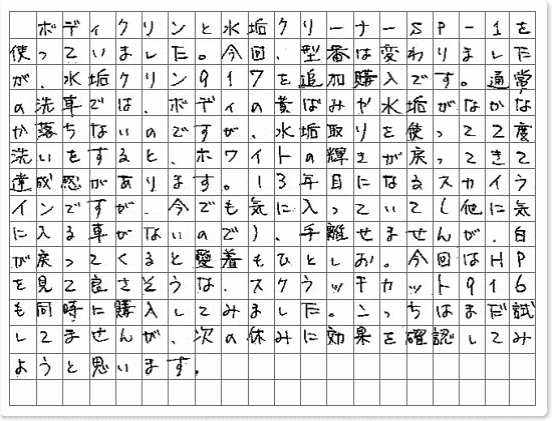 ボディクリンと水垢クリーナーSP-1を
使っていました。今回、型番は変わりました
が、水垢クリン917を追加購入です。通常
の洗車では、ボディの黄ばみや水垢がなかな
か落ちないのですが、水垢取りを使って2度
洗いをすると、ホワイトの輝きが戻ってきて
達成感があります。13年目になるスカイラ
インですが、今でも気に入っていて(他に気
に入る車がないので)、手離せませんが、白
が戻ってくると愛着もひとしお。今回はHP
を見て良さそうな、スクラッチカット916
も同時に購入してみました。こっちはまだ試
してませんが、次の休みに効果を確認してみ
ようと思います。